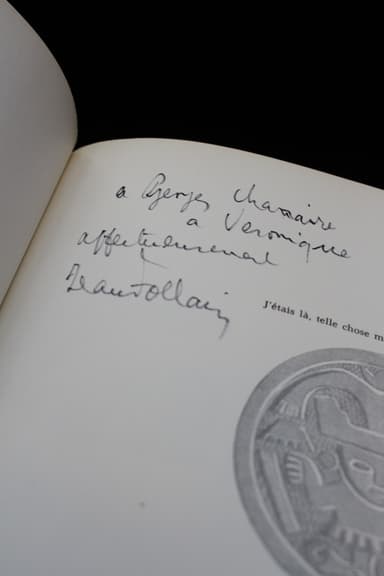 a Georges Chamaire
a Veronique
affectueusement
Jean Follain
J'étais là, telle chose m